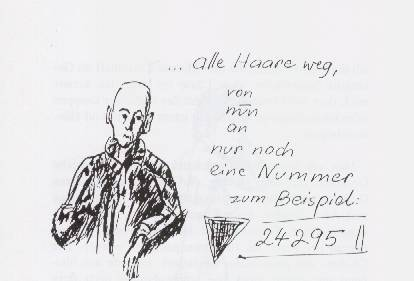 ... alle Haare weg,
von
nun
an
nur noch
eine Nummer
zum Beispiel:
24295